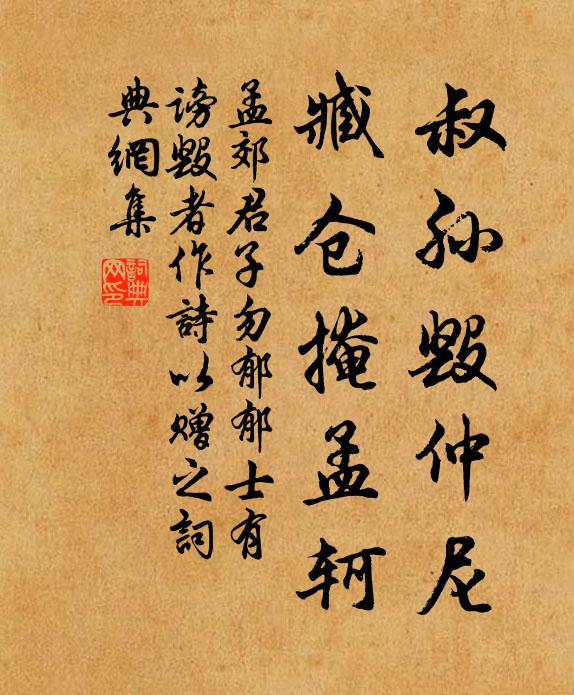 叔孙毁仲尼
臧仓掩孟轲
孟郊君子勿郁郁士有
谤毁者作詩以赠之詞
典網集
詞典網印